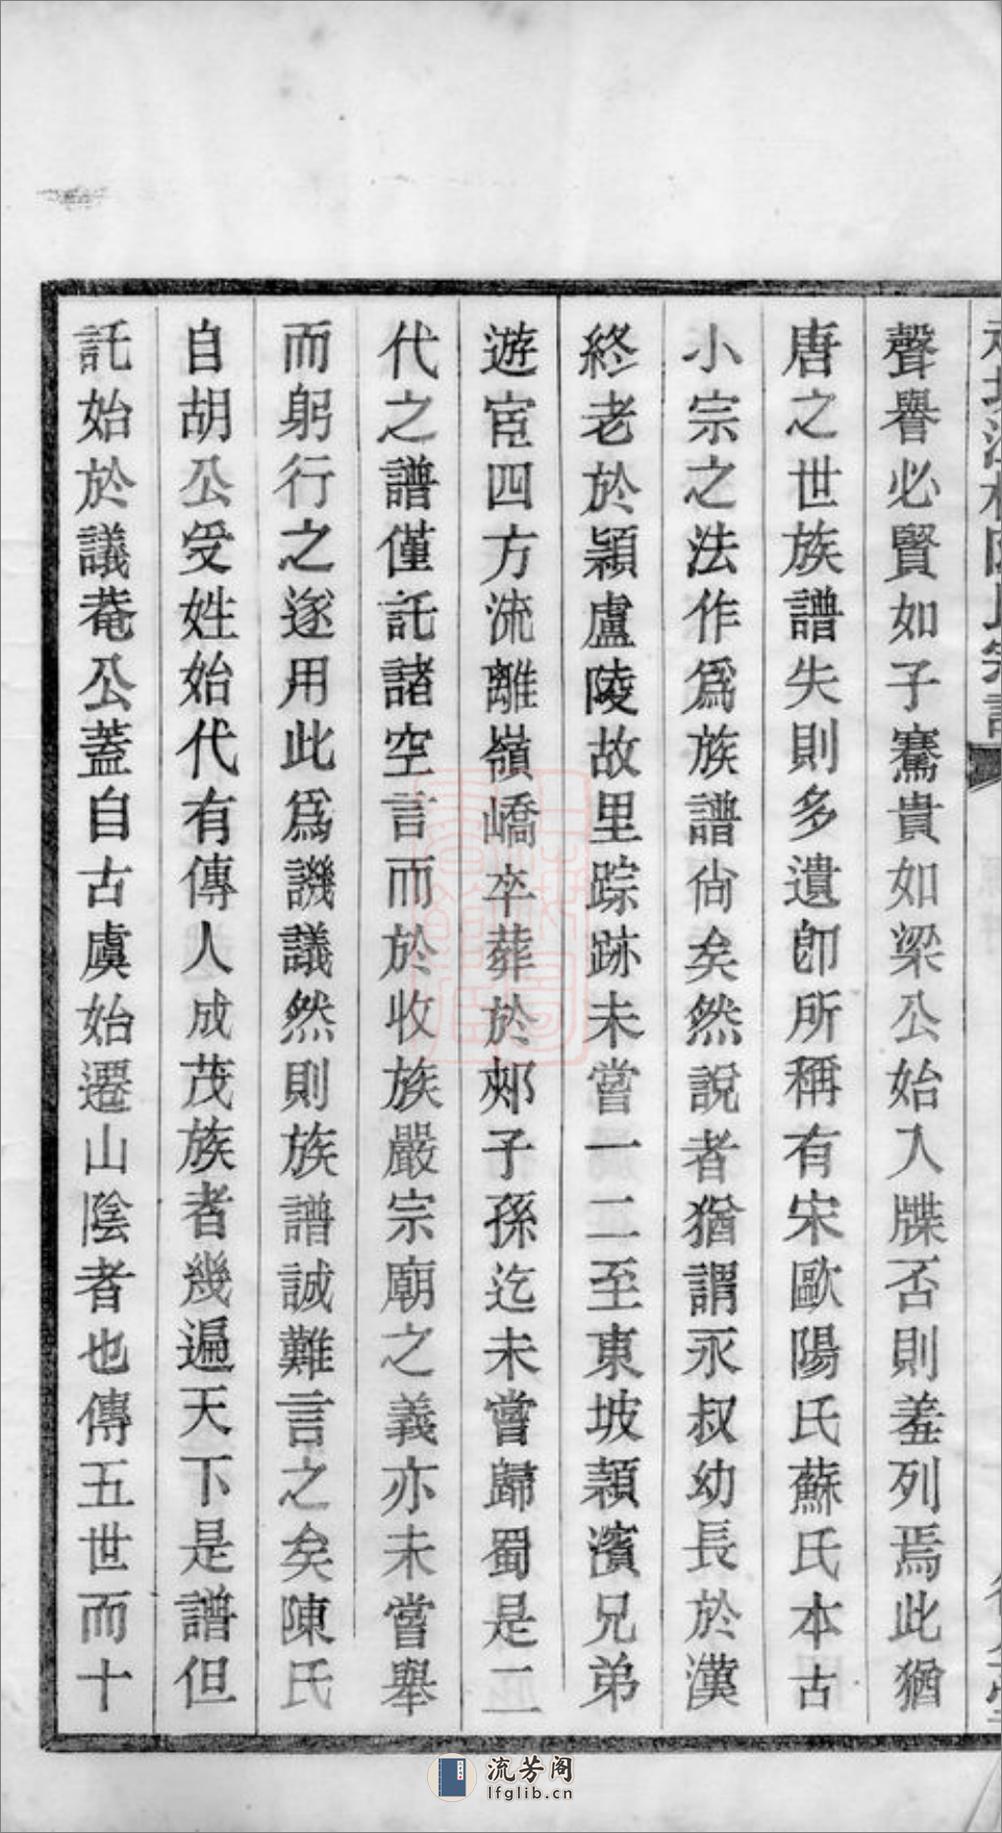 聲譽必賢如子騫貴如梁公始入牒否則羞列焉此猶
唐之世族譜失則多遺卽所稱有宋歐陽氏蘇氏本古
小宗之法作爲族譜尙矣然說者猶謂永叔幼長於漢
終老於穎盧陵故里踪跡未嘗一二至東坡穎濱兄弟
遊宦四方流離嶺嶠卒葬於郟子孫迄未嘗歸蜀是二
代之譜僅託諸空言而於收族嚴宗廟之義亦未嘗舉
而躬行之遂用此爲譏議然則族譜誠難言之矣陳氏
自胡公受姓始代有傳人成茂族者幾遍天下是譜但
託始於議菴公蓋自古虞始遷山陰者也傳五世而十
流芳阁
lfglib.cn